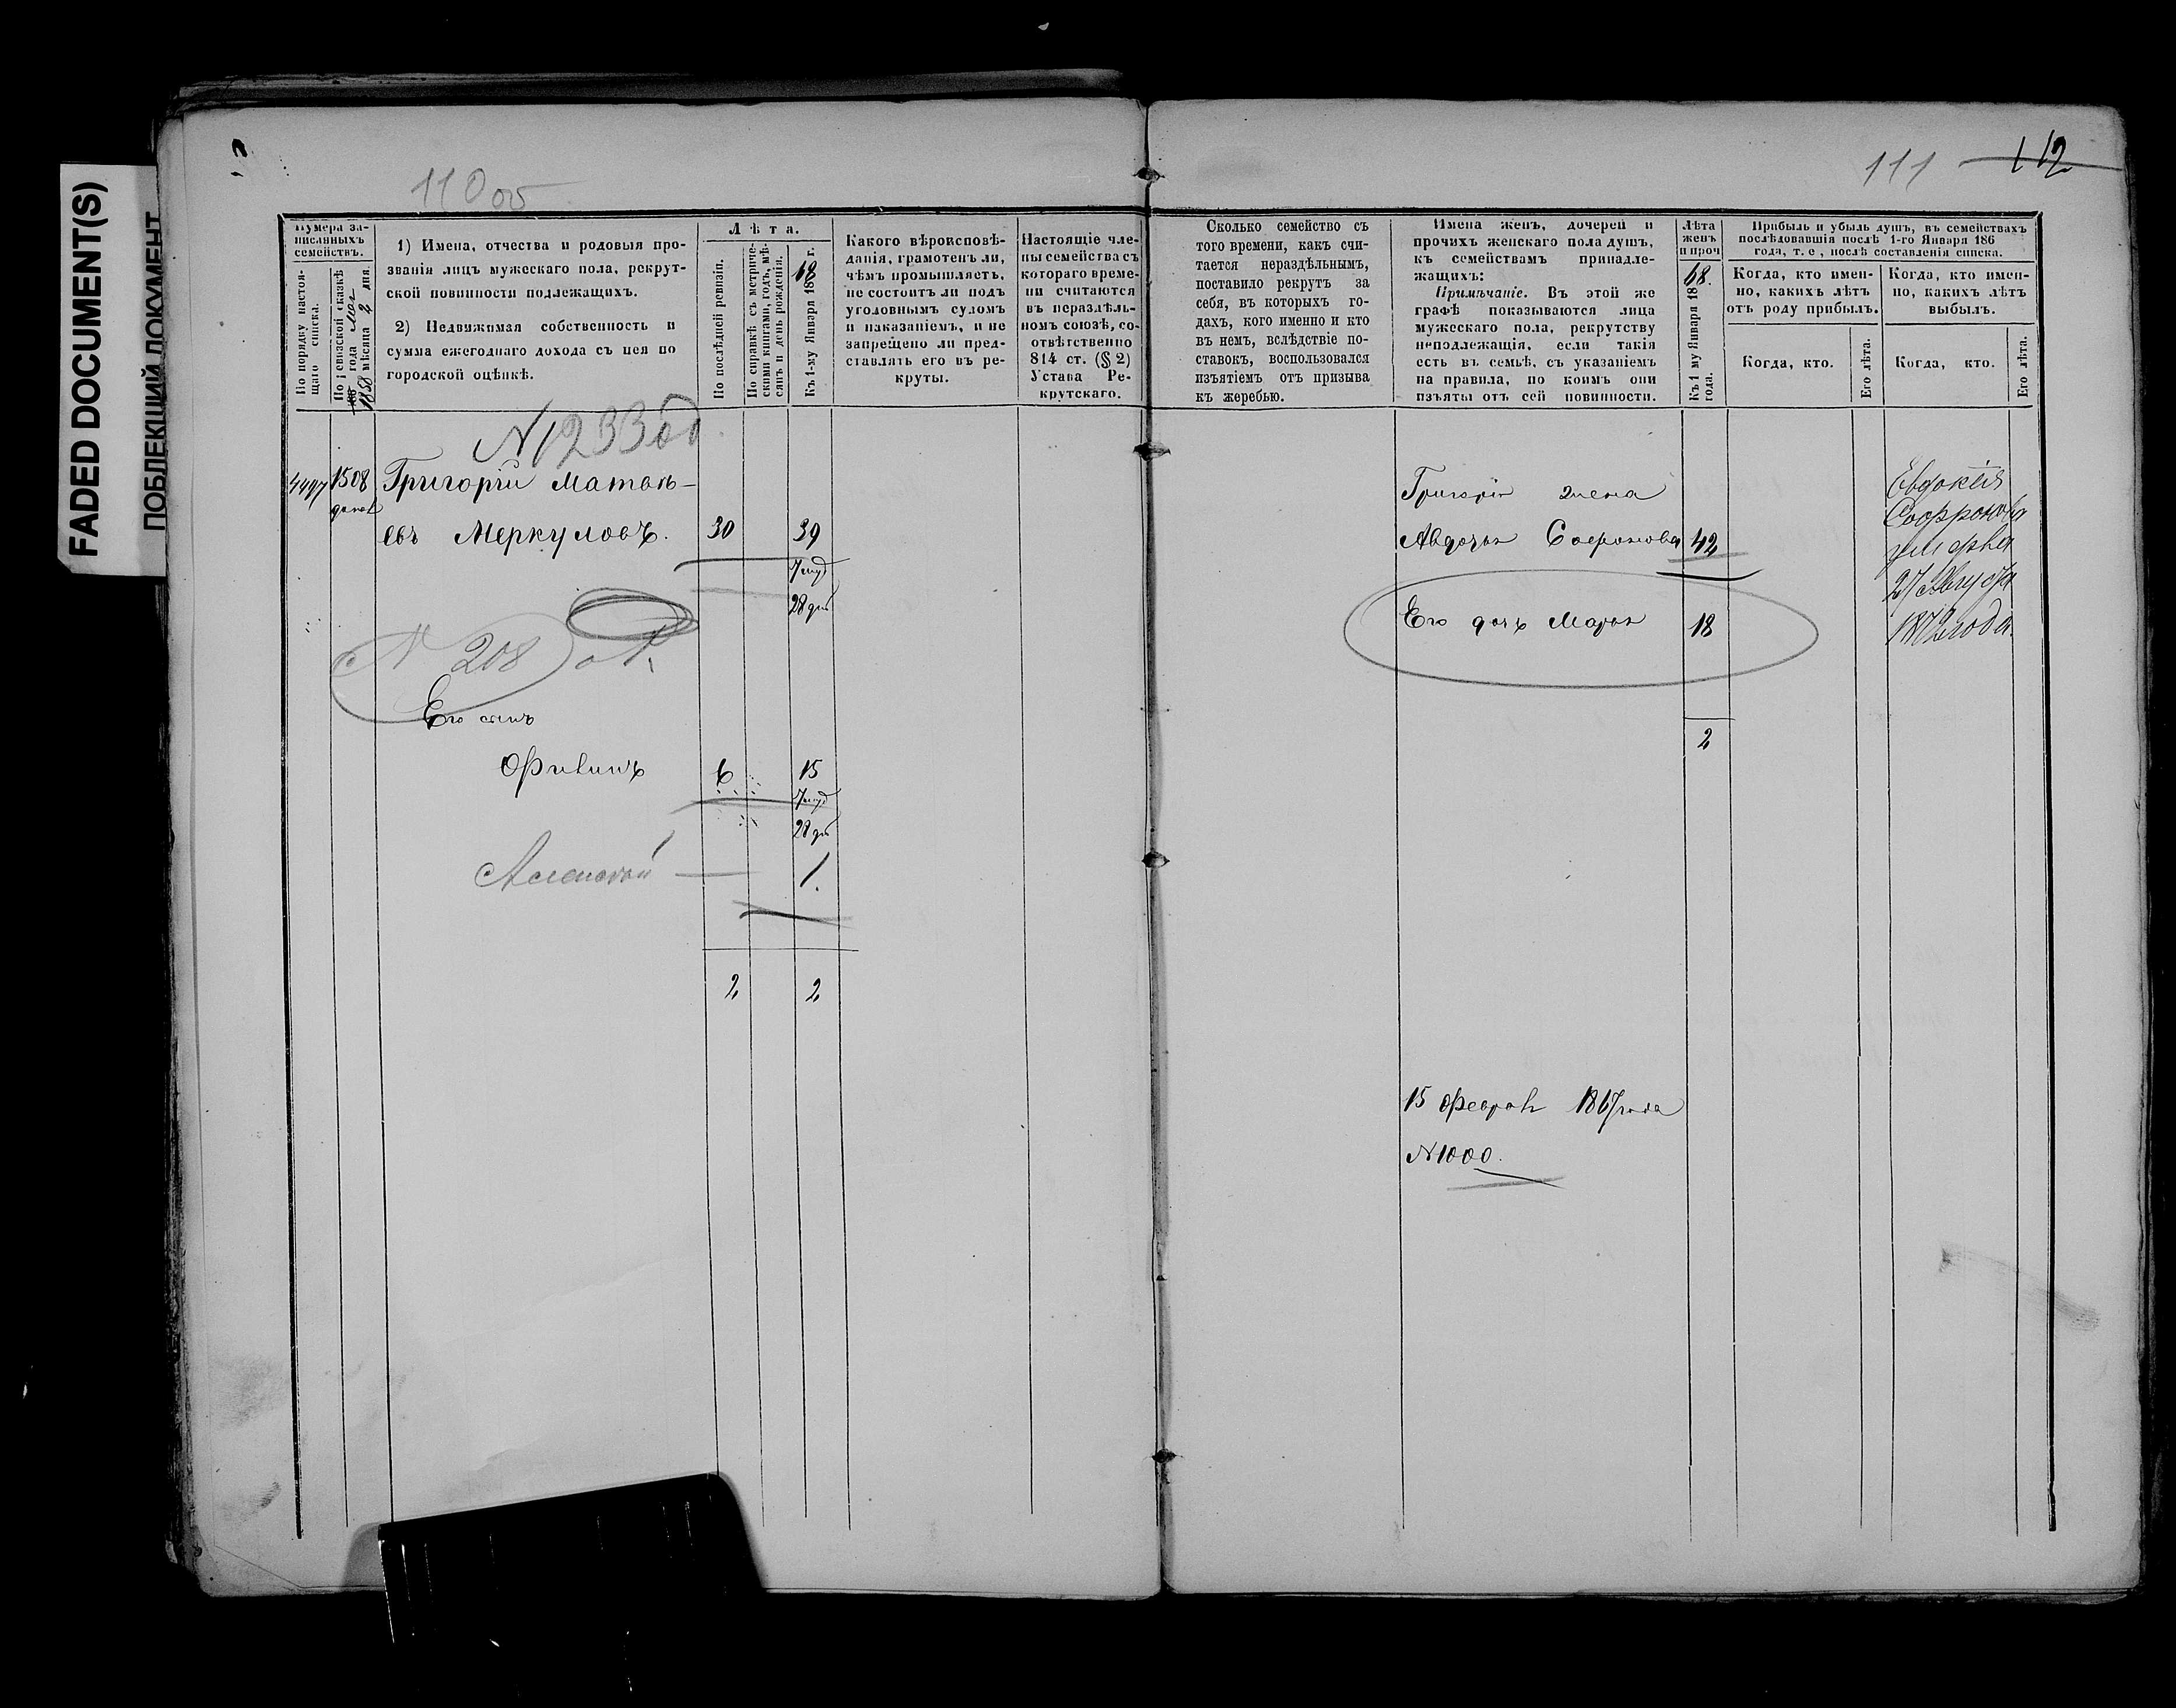 FADED DOCUMENT(S)
ПОБЛЕКШИЙ ДОКУМЕНТ
110 об
111 112
Нумера за-
писанныхъ
семействъ.
По порядку настоя-
щаго списка.
По ревизской сказкѣ
1858 года мая
мѣсяца 2 дня.
1) Имена, отчества и родовыя про-
званія лицъ мужескаго пола, рекрут-
ской повинности подлежащихъ.
2) Недвижимая собственность и
сумма ежегоднаго дохода съ нея по
городской оцѣнкѣ.
Лѣта.
По послѣдней ревизіи.
По справкѣ съ метриче-
скими книгами, годъ, мѣ-
сяцъ и день рожденія.
Къ 1-му Января 1868 г.
Какого вѣроисповѣ-
данія, грамотенъ ли,
чѣмъ промышляетъ,
не состоитъ ли подъ
уголовнымъ судомъ
и наказаніемъ, и не
запрещено ли пред-
ставлять его въ ре-
круты.
Настоящіе чле-
ны семейства съ
котораго време-
ни считаются
въ нераздѣль-
номъ союзѣ, со-
отвѣтственно
814 ст. (§ 2)
Устава Ре-
крутскаго.
Сколько семейство съ
того времени, какъ счи-
тается нераздѣльнымъ,
поставило рекрутъ за
себя, въ которыхъ го-
дахъ, кого именно и кто
въ немъ, вслѣдствіе по-
ставокъ, воспользовался
изъятіемъ отъ призыва
къ жеребью.
Имена женъ, дочерей и
прочихъ женскаго пола душъ,
къ семействамъ принадле-
жащихъ:
Примѣчаніе. Въ этой же
графѣ показываются лица
мужескаго пола, рекрутству
неподлежащія, если такія
есть въ семьѣ, съ указаніемъ
на правила, по коимъ они
изъяты отъ сей повинности.
Лѣта
женъ
и проч
Къ 1 му Января 1868.
года.
Прибыль и убыль душъ, въ семействахъ
послѣдовавшія послѣ 1-го Января 186
года, т. е, послѣ составленія списка.
Когда, кто имен-
но, какихъ лѣтъ
отъ роду прибылъ.
Когда, кто имен-
но, какихъ лѣтъ
выбылъ.
Когда, кто.
Его лѣта.
Когда, кто.
Его лѣта.
N1233
4497 1508 Григорій Матвѣ-
евъ Меркуловъ. 30 39
28 дн
N 208
Его сынъ
Филипъ 6 15
28 дн
Алексѣй — 1.
2 2
Григорія жена
Авдотья Софронова 42
Его дочь Марья 18
2
15 Февраля 1867 года
N1000.
Евдокія
Софронова
умерла
27 Августа
1872 года.